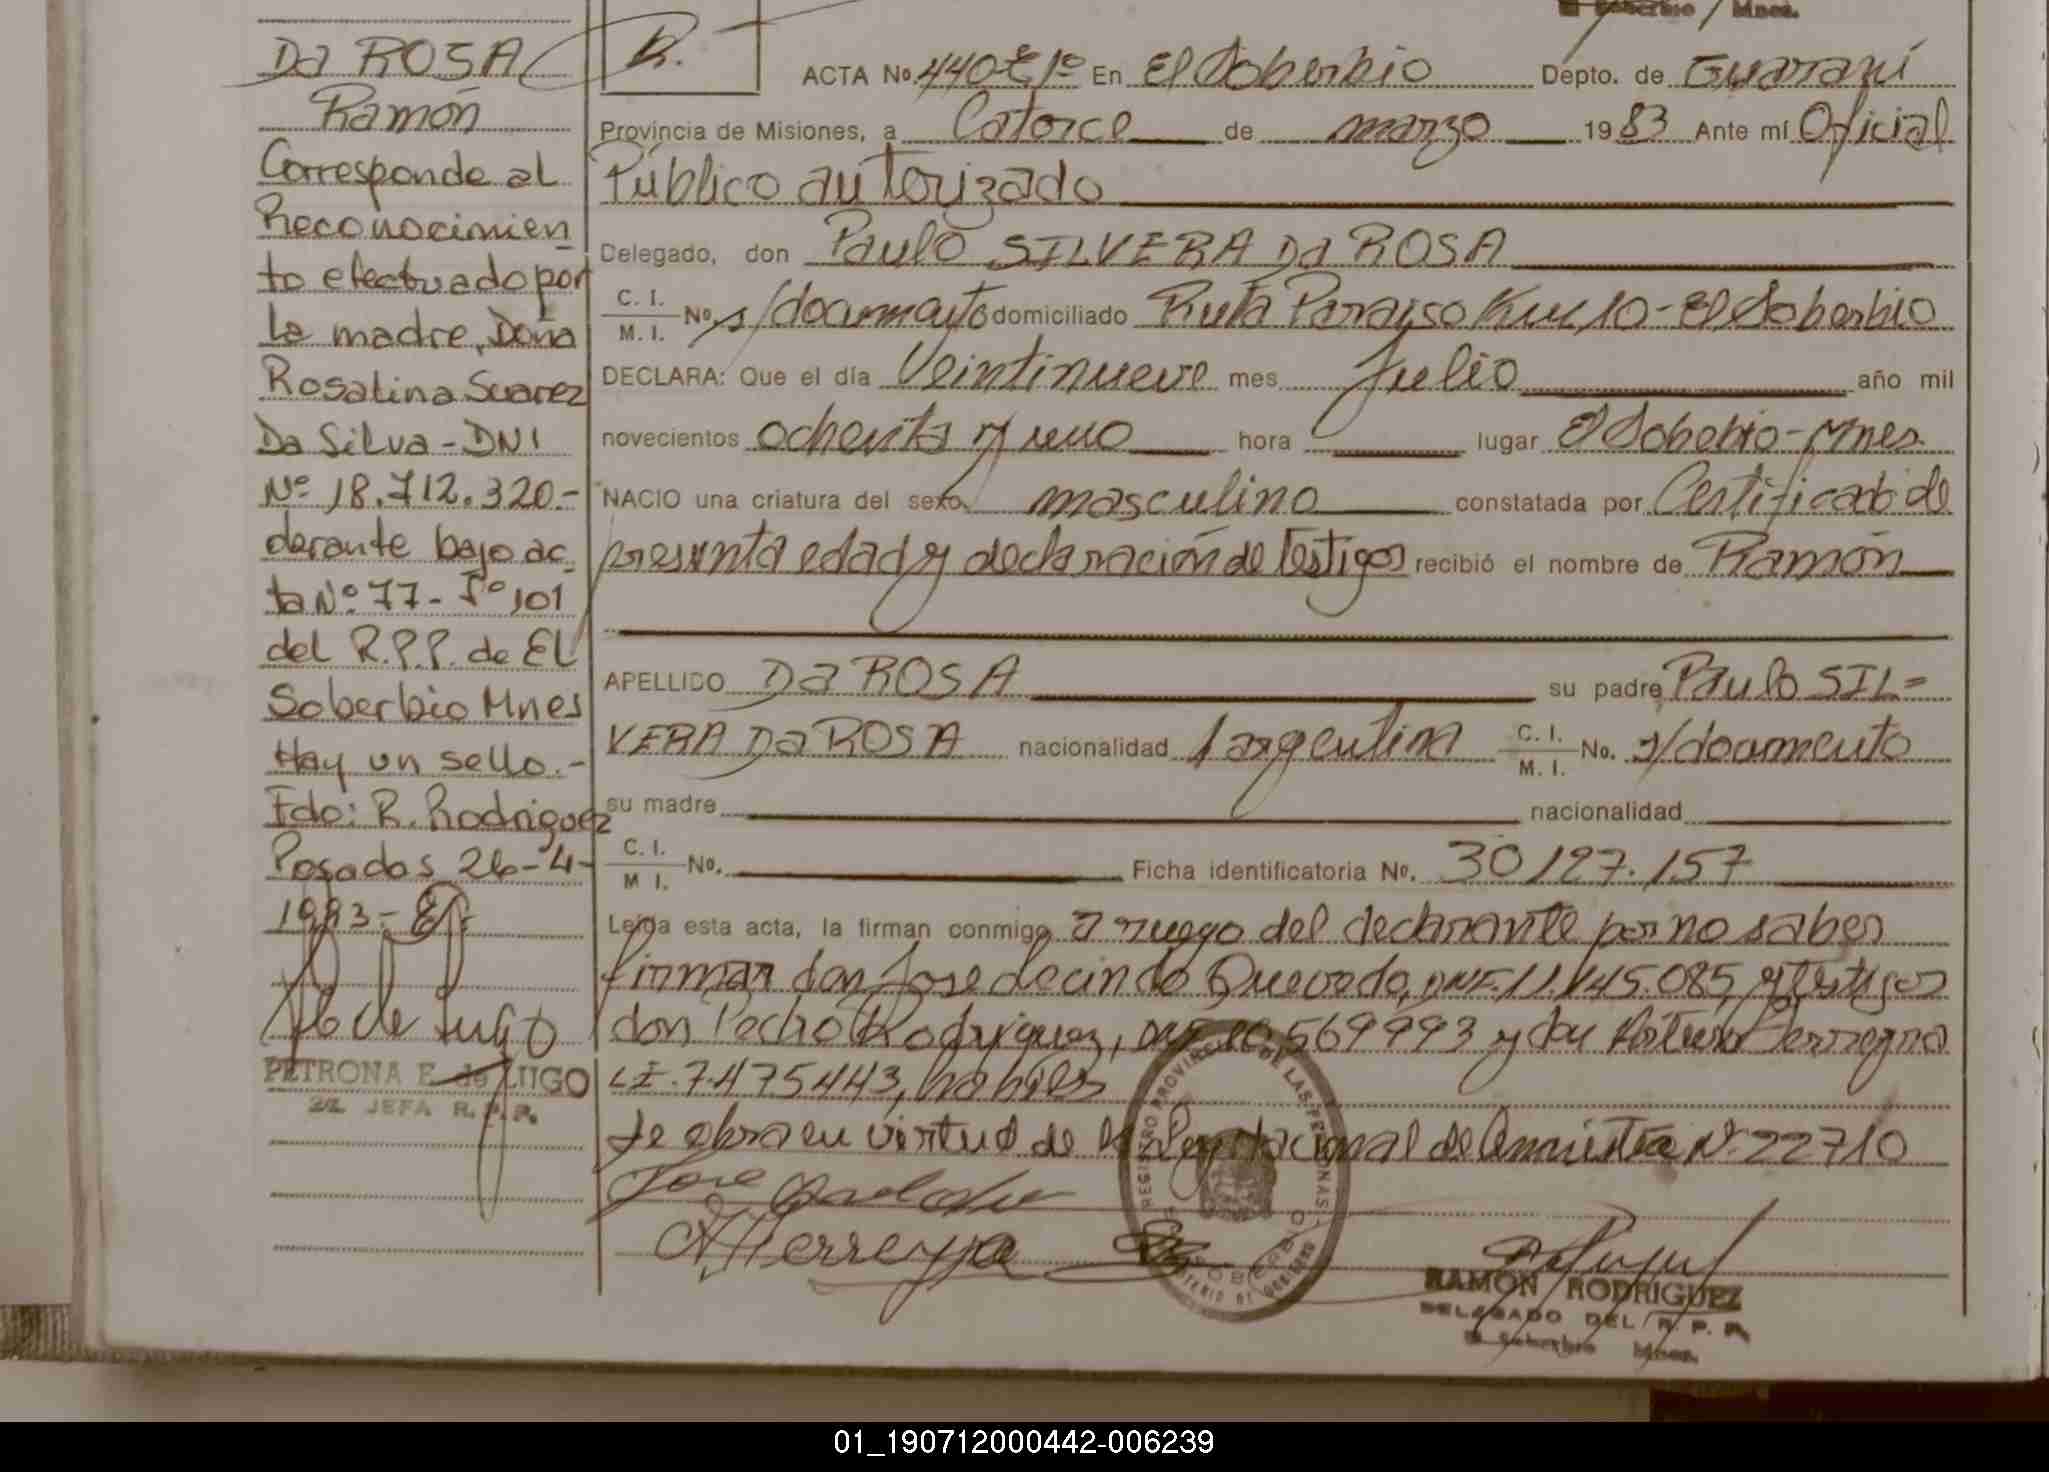 El Soberbio / Mnes.
Da ROSA
Ramón
Corresponde al
Reconocimien
to efectuado por
la madre, Doña
Rosalina Suarez
Da Silva - DNI
Nº 18.712.320.-
darante bajo ac
ta Nº 77 - Fº 101
del R.P.P. de El
Soberbio Mnes
Hay un sello.-
Fdo: R. Rodriguez
Posadas 26-4-
PETRONA E. de LUGO
JEFA R.P.P.
R.
ACTA Nº 440 tº 1º En El Soberbio Depto. de Guaraní
Provincia de Misiones, a Catorce de marzo 1983 Ante mí Oficial
Público autorizado
Delegado, don Paulo SILVERA Da ROSA
C. I. / M. I. Nº s/documento domiciliado Ruta Paraiso Km 10 - El Soberbio
DECLARA: Que el día Veintinueve mes Julio año mil
novecientos ochenta y uno hora lugar El Soberbio - Mnes.
NACIO una criatura del sexo masculino constatada por Certificado de
presunta edad y declaración de testigos recibió el nombre de Ramón
APELLIDO Da ROSA su padre Paulo SIL=
VERA Da ROSA nacionalidad argentina C. I. / M. I. No. s/documento
su madre nacionalidad
C. I. / M. I. No. Ficha identificatoria Nº. 30127.157
Leída esta acta, la firman conmigo a ruego del declarante por no saber
firmar don Jose Quevedo, DNI. 11.145.085, y testigos
don Pedro Rodriguez, 569993 y don Arturo
LE. 7.475443, habiles
Se obra en virtud de la Ley Nacional de Amnistia Nº 22710
REGISTRO PROVINCIAL DE LAS PERSONAS
SOBERBIO
MINISTERIO DE GOBIERNO
RAMON RODRIGUEZ
DELEGADO DEL R. P. P.
El Soberbio Mnes.
01_190712000442-006239